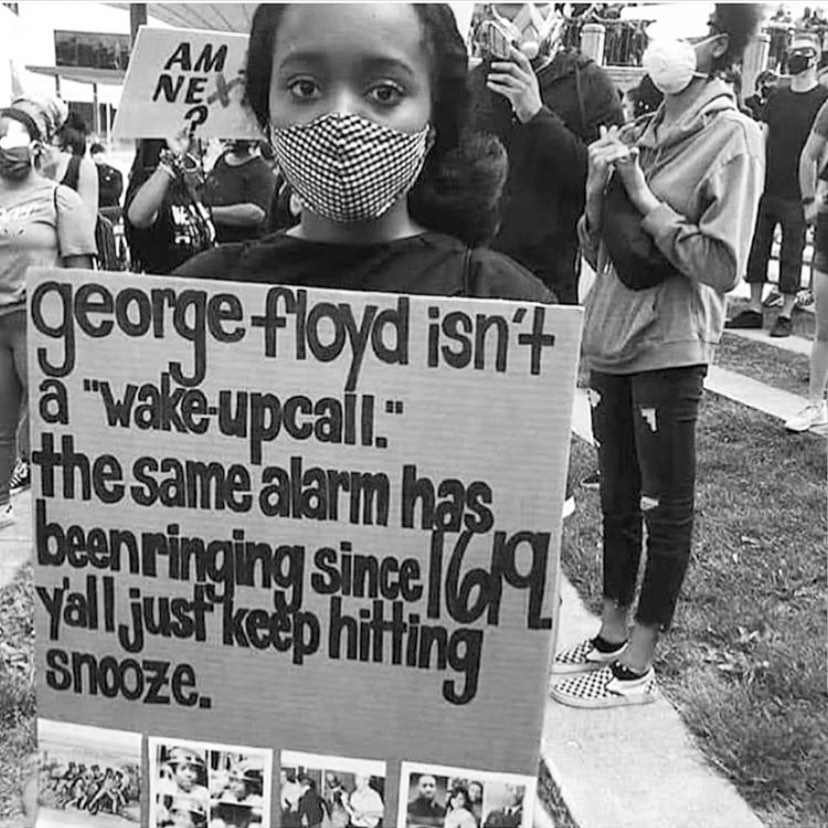 AM
NEX
?
george floyd isn't
a "wake-upcall."
the same alarm has
been ringing since 1619.
y'all just keep hitting
snooze.